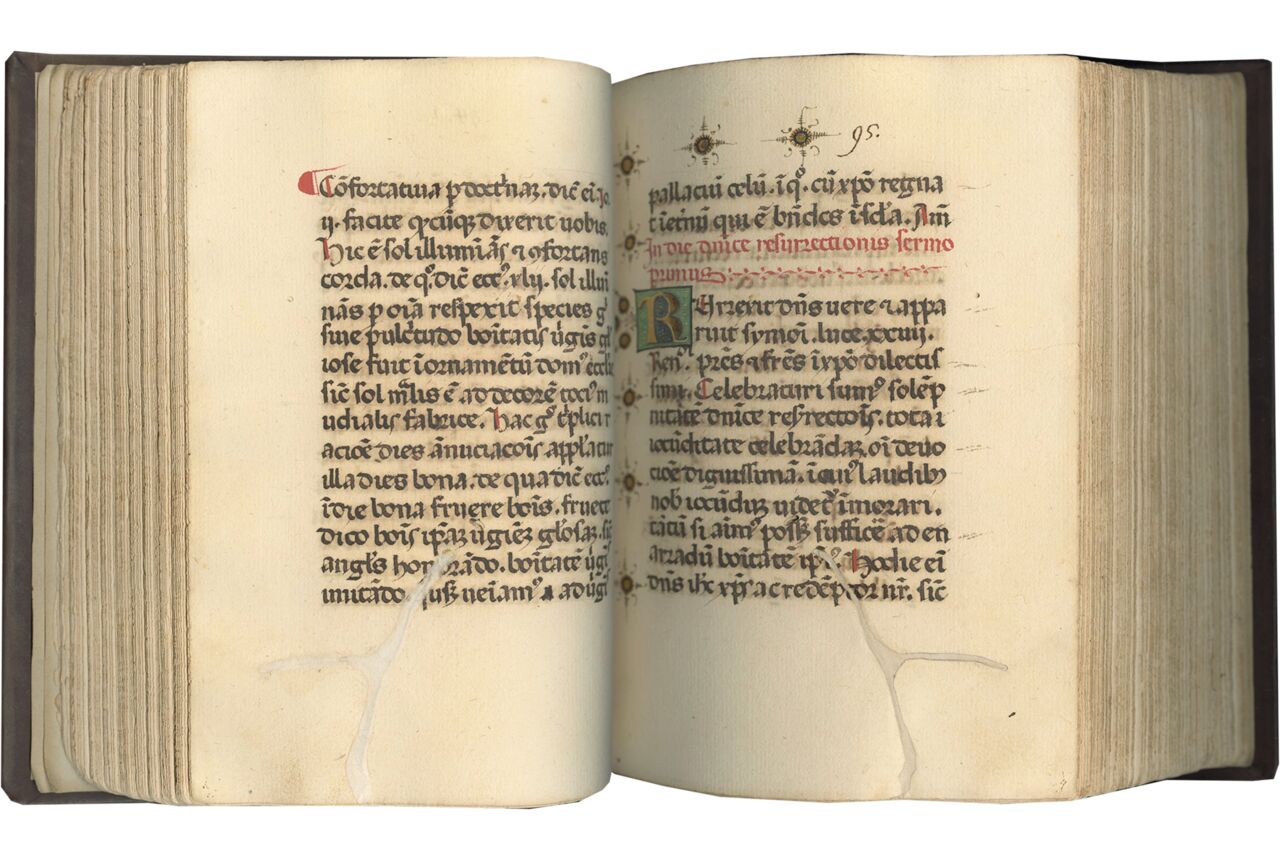 Cōfortatiua p doctͥnaꝫ. dic̄ ei. Jo.
ij. facite qͥcūqꝫ dixerit uobis.
Hic ē sol illumināˢ ⁊ ꝯfortans
corda. de qͦ. dic̄ eccͨ. xlij. sol illūi
nās p oīa respexit species gͦ
siue pulcͥtudo boītatis ūgis gl̄
iose fuit ī ornamētū domꝰ
sic̄ sol mͥlis ē ad decorē tociꝰ m
udialis fabrice. Hac gͦ tͥplici r
acioē dies ānuciacoīs appl̄atur
illa dies bona. de qua dic̄ eccͨ.
ī die bona fruere boīs. fruere
dico boīs ip̄aꝫ ūgiēꝫ gl̄osaꝫ.
angl̄s honorādo. boītatē ūgī
imitādo. qͥusqꝫ ueīamꝰ ad ūgī
95.
pallaciū celū. ī qͦ. cū xp̄o regna
t ī etn̄ū qui ē bn̄dcs ī scl̄a. Am̄
In die dn̄ice resurrectionis sermo
primus
REsrexit dn̄s uere ⁊ appa
ruit symoī. luce. xxiiij.
Ren̄. prēs ⁊ frēs ī xp̄o dilectis
simi. Celebraturi sumꝰ solēp
nitatē dn̄ice resr̄rectoīs. tota ī
iocūditate celebrādaꝫ. oī deuo
cioē dignissimā. ī cuiꝰ laudibꝫ
nob iocūdiꝫ uidetͬ īmorari.
tātū si aīmꝰ possꝫ sufficē ad en
arradū boītatē ip̄iꝰ. Hodie eī
dn̄s ih̄c xp̄s ac redēptor nr̄. sic̄